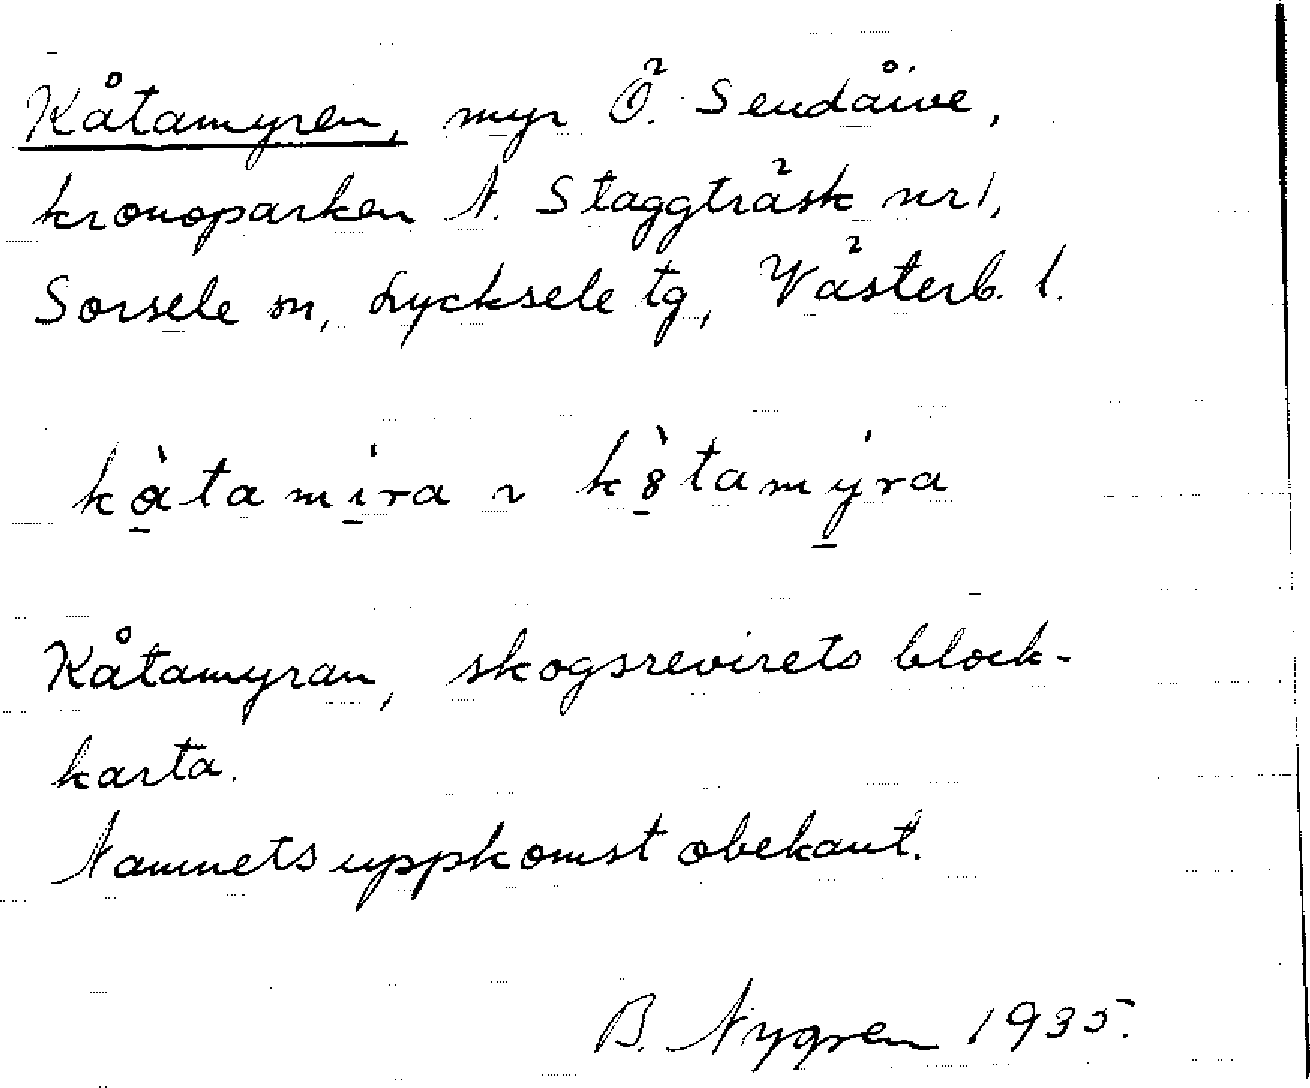 Kåtamyren, myr Ö. Sendåive,
kronoparken N. Staggträsk nr 1,
Sorsele sn, Lycksele tg, Västerb. l.
kå̀tamíra ~ kȣ̀tamýra
Kåtamyran, skogsrevirets block-
karta.
Namnets uppkomst obekant.
B. Nygren 1935.